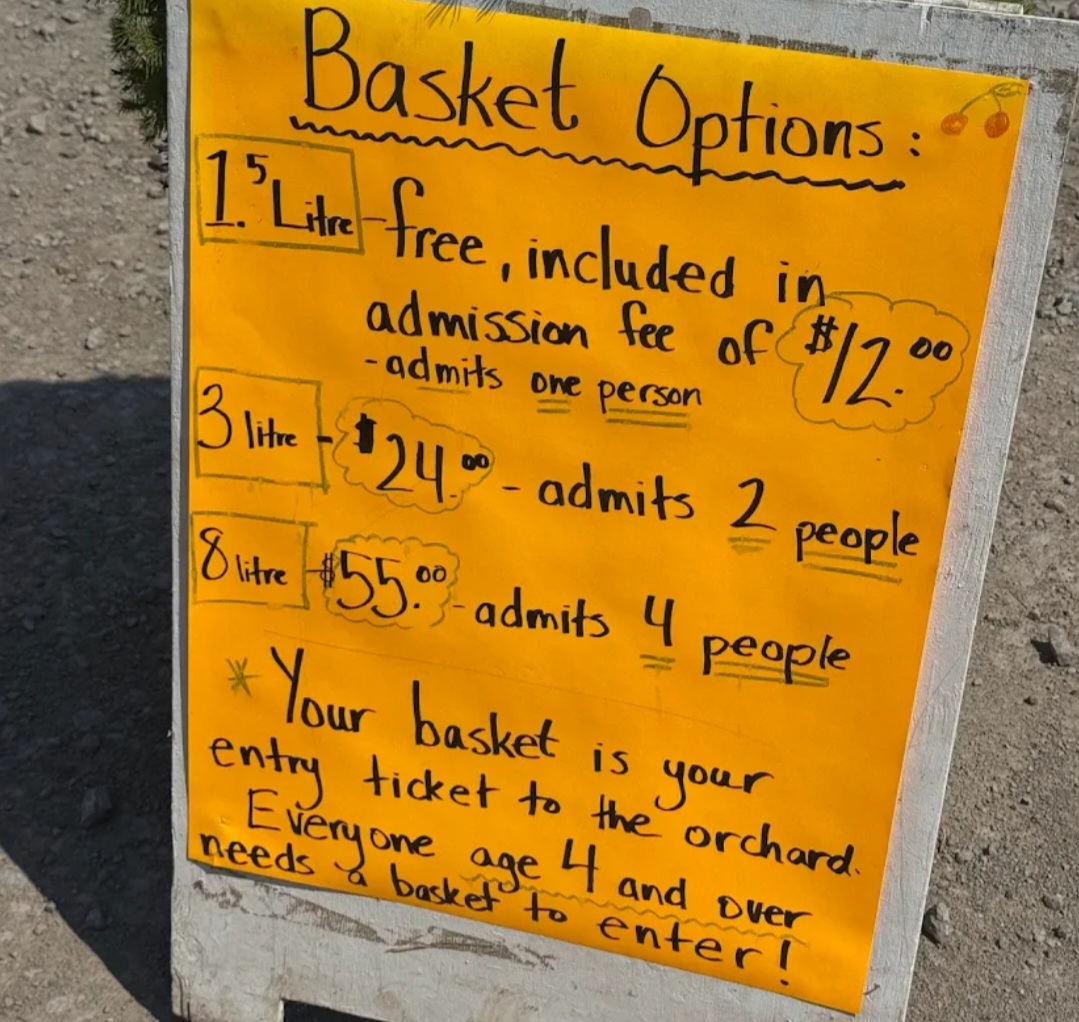 Basket Options:
1.5 Litre - free, included in
admission fee of $12.00
- admits one person
3 litre - $24.00 - admits 2 people
8 litre - $55.00 - admits 4 people
* Your basket is your
entry ticket to the orchard.
Everyone age 4 and over
needs a basket to enter!